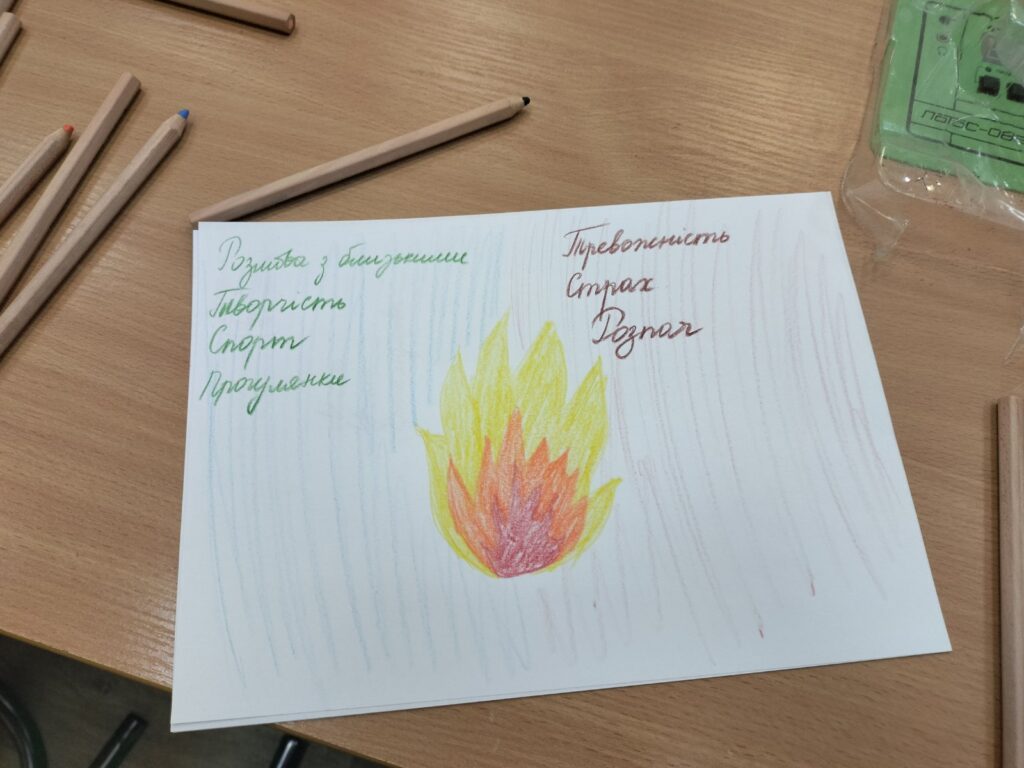 Розмова з близькими
Творчість
Спорт
Прогулянки
Тривожність
Страх
Розпач